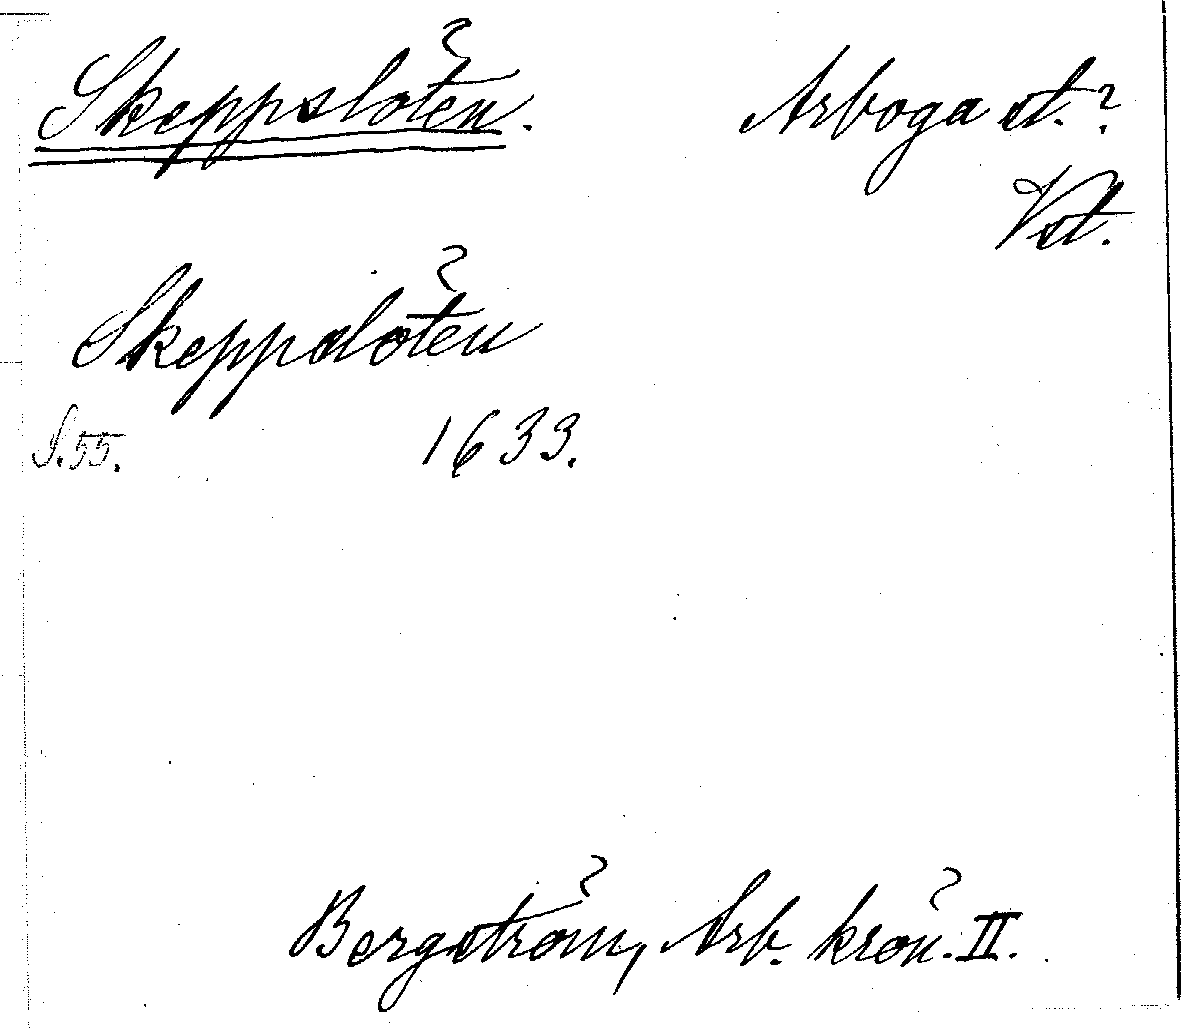 Skeppslöten. Arboga st.?
Vst.
Skeppslöten
S.55. 1633.
Bergström, Arb. krön. II.